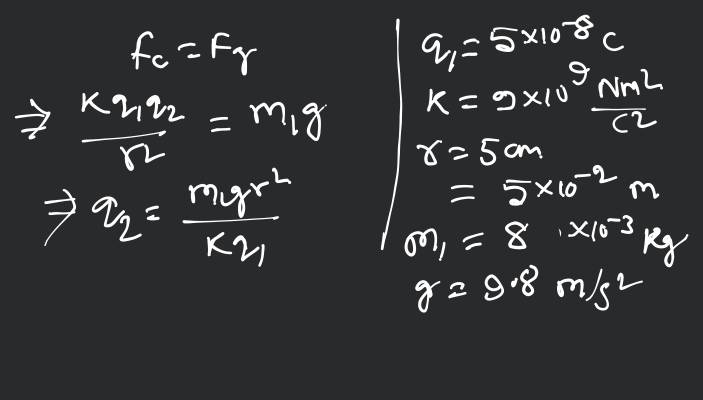 fc = Fg
⇒ Kq₁q₂/r² = m₁g
⇒ q₂ = m₁gr²/Kq₁
q₁ = 5×10⁻⁸ C
K = 9×10⁹ Nm²/C²
r = 5 cm
= 5×10⁻² m
m₁ = 8 ×10⁻³ Kg
g = 9.8 m/s²